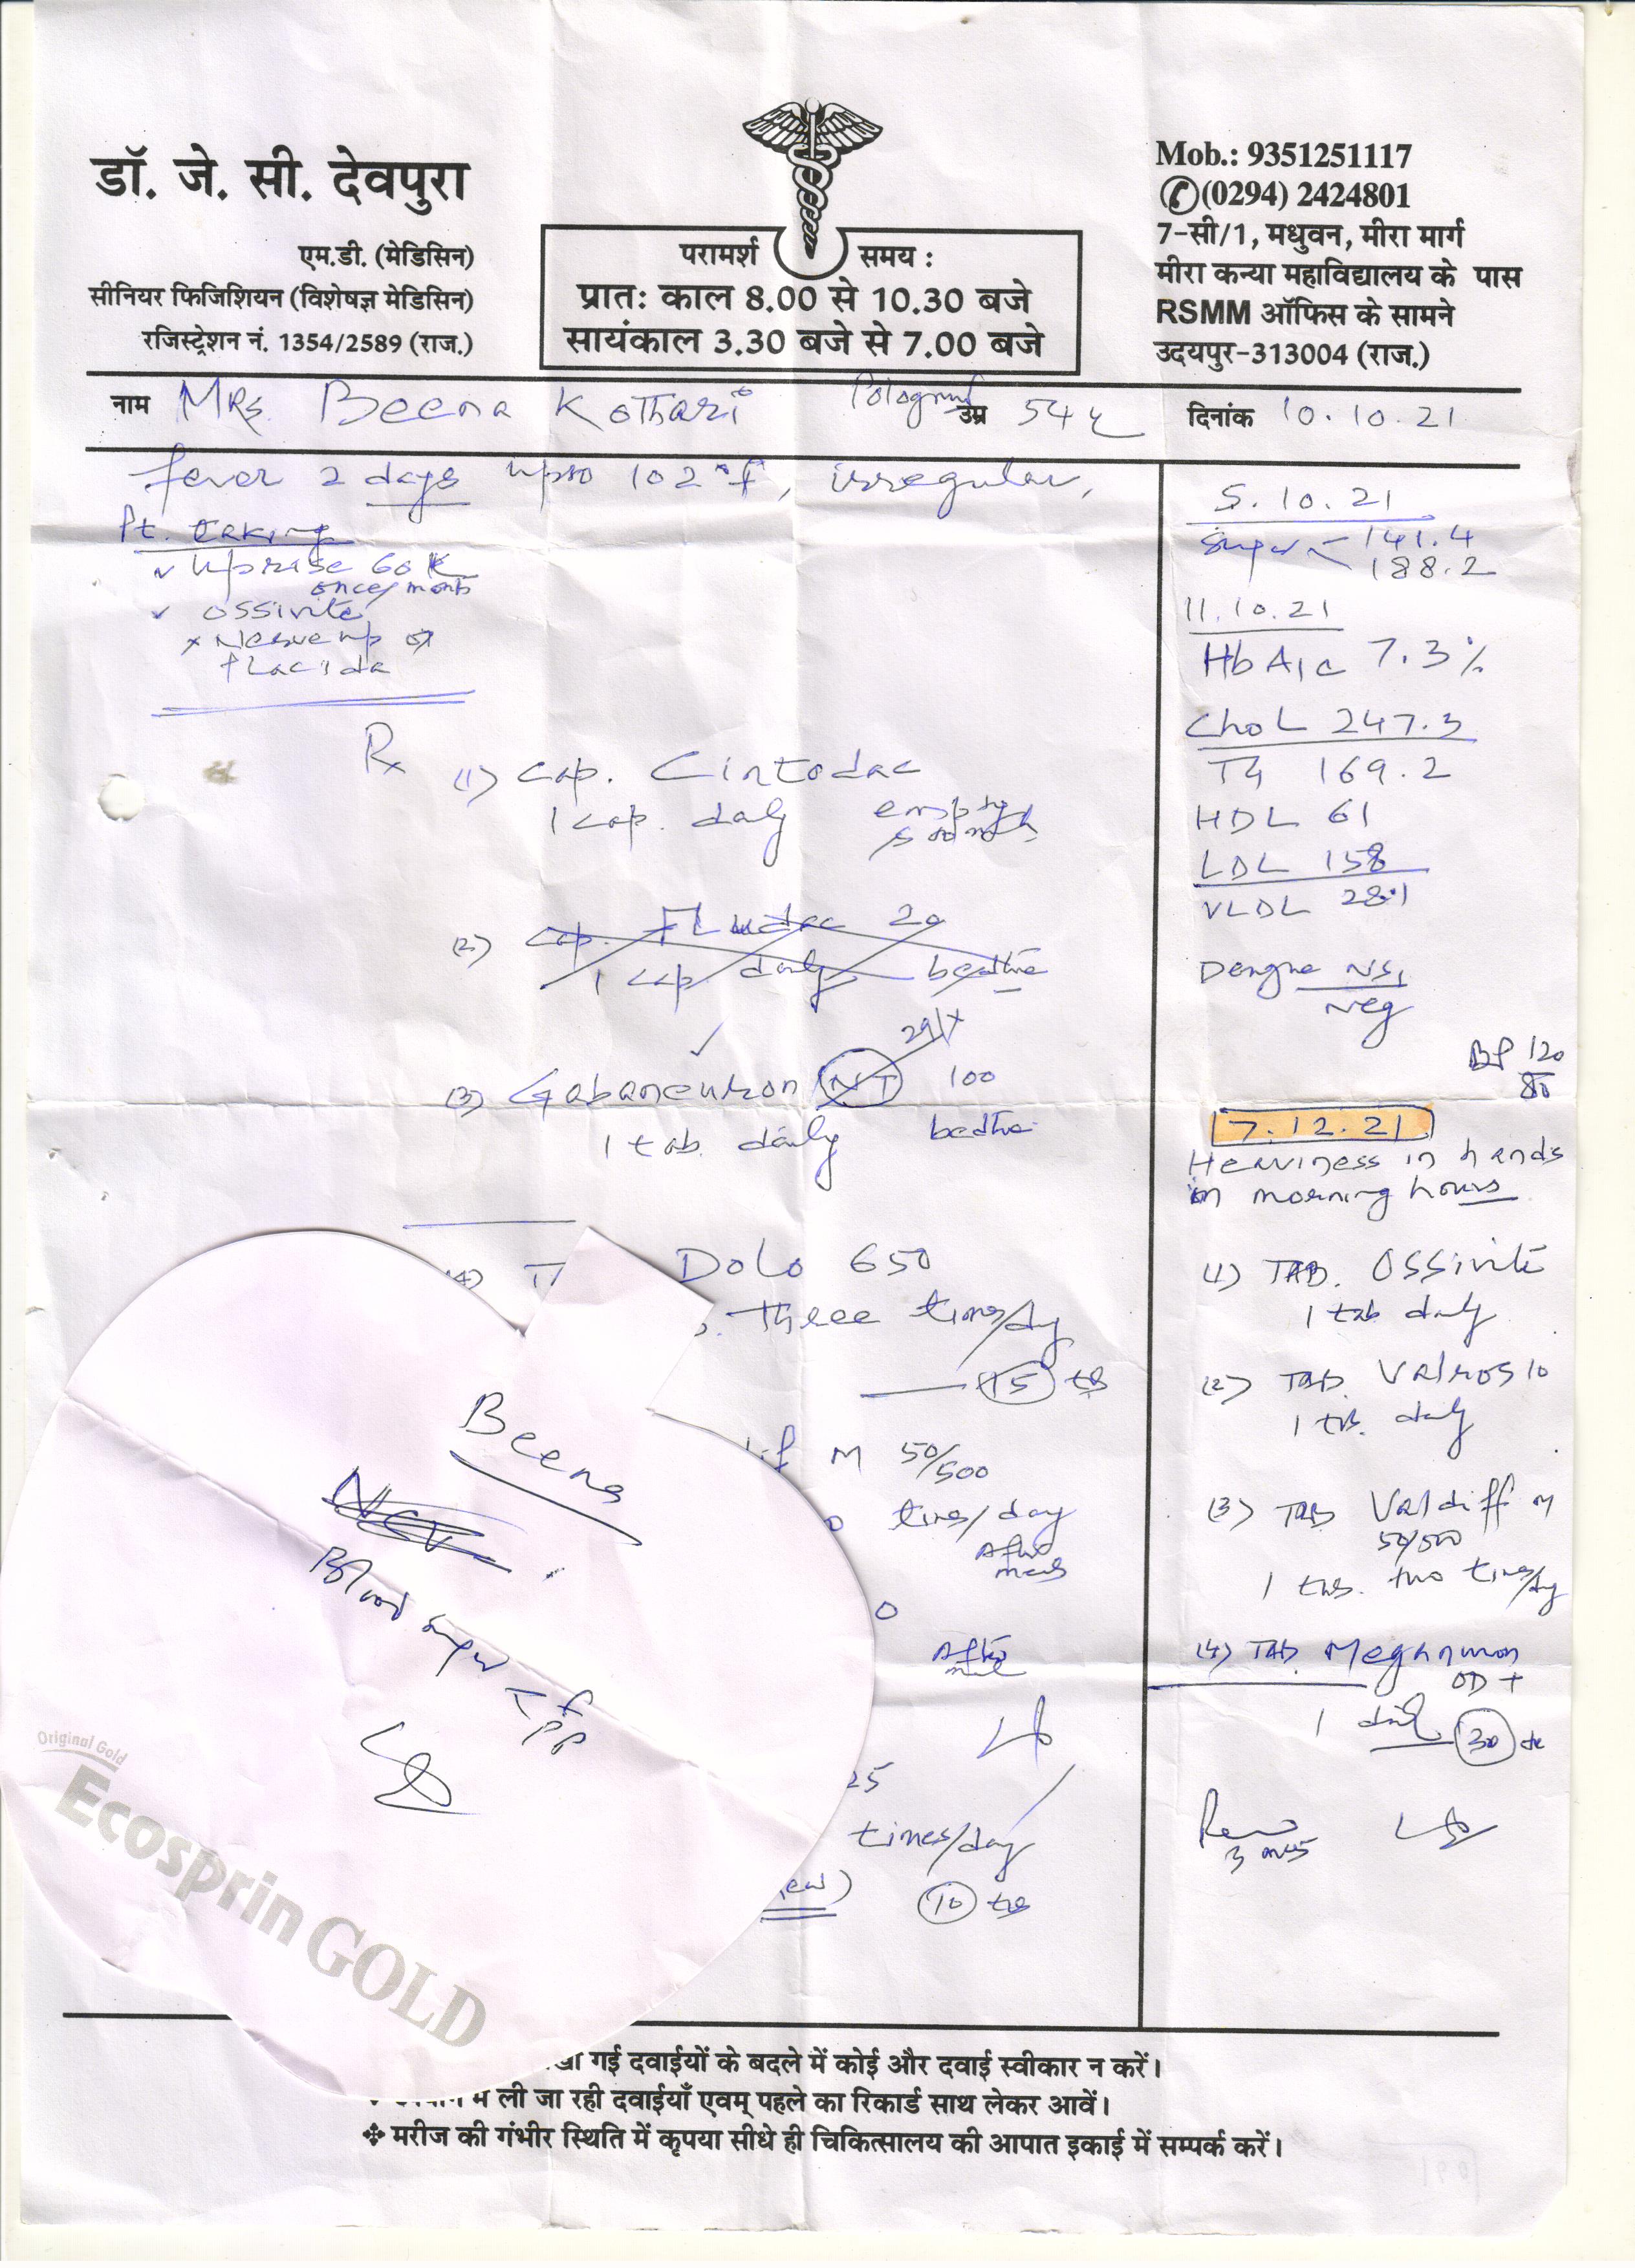 डॉ. जे. सी. देवपुरा
एम.डी. (मेडिसिन)
सीनियर फिजिशियन (विशेषज्ञ मेडिसिन)
रजिस्ट्रेशन नं. 1354/2589 (राज.)
परामर्श समय :
प्रातः काल 8.00 से 10.30 बजे
सायंकाल 3.30 बजे से 7.00 बजे
Mob.: 9351251117
(0294) 2424801
7-सी/1, मधुवन, मीरा मार्ग
मीरा कन्या महाविद्यालय के पास
RSMM ऑफिस के सामने
उदयपुर-313004 (राज.)
नाम MRs. Beena Kothari उम्र 54 y दिनांक 10.10.21
fever 2 days upto 102°f, irregular,
Pt. taking
Uprise 60 K
once/month
ossivite
Nerveup or
Placida
Rx
(1) Cap. Cintodac
1 cap. daily empty stomach
(2) Cap. Fludac 20
1 cap daily bedtime
29/x
(3) Gabaneuron NT 100
1 tab. daily bedtime
(4) T Dolo 650
Three times/day
15 tab
M 50/500
times/day
After meals
After meal
25
times/day
10 tab
5.10.21
Sugar 141.4
188.2
11.10.21
HbA1c 7.3%
Chol 247.3
TG 169.2
HDL 61
LDL 158
VLDL 28.1
Dengue NS1
Neg
BP 120/80
7.12.21
Heaviness in hands
in morning hours
(1) TAB. Ossivite
1 tab daily
(2) TAB. Valros 10
1 tab. daily
(3) TAB Valdiff M
50/500
1 tab. two times/day
(4) TAB. Meganuron
OD +
1 daily 30 tab
Beena
Blood sugar F
PP
Original Gold
Ecosprin GOLD
गई दवाईयों के बदले में कोई और दवाई स्वीकार न करें।
में ली जा रही दवाईयाँ एवम् पहले का रिकार्ड साथ लेकर आवें।
मरीज की गंभीर स्थिति में कृपया सीधे ही चिकित्सालय की आपात इकाई में सम्पर्क करें।